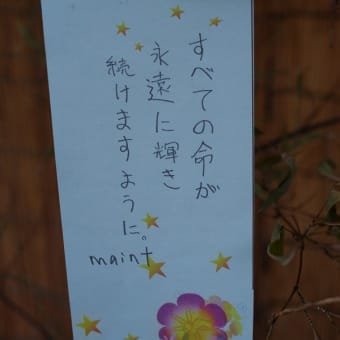 すべての命が
永遠に輝き
続けますように。
maint